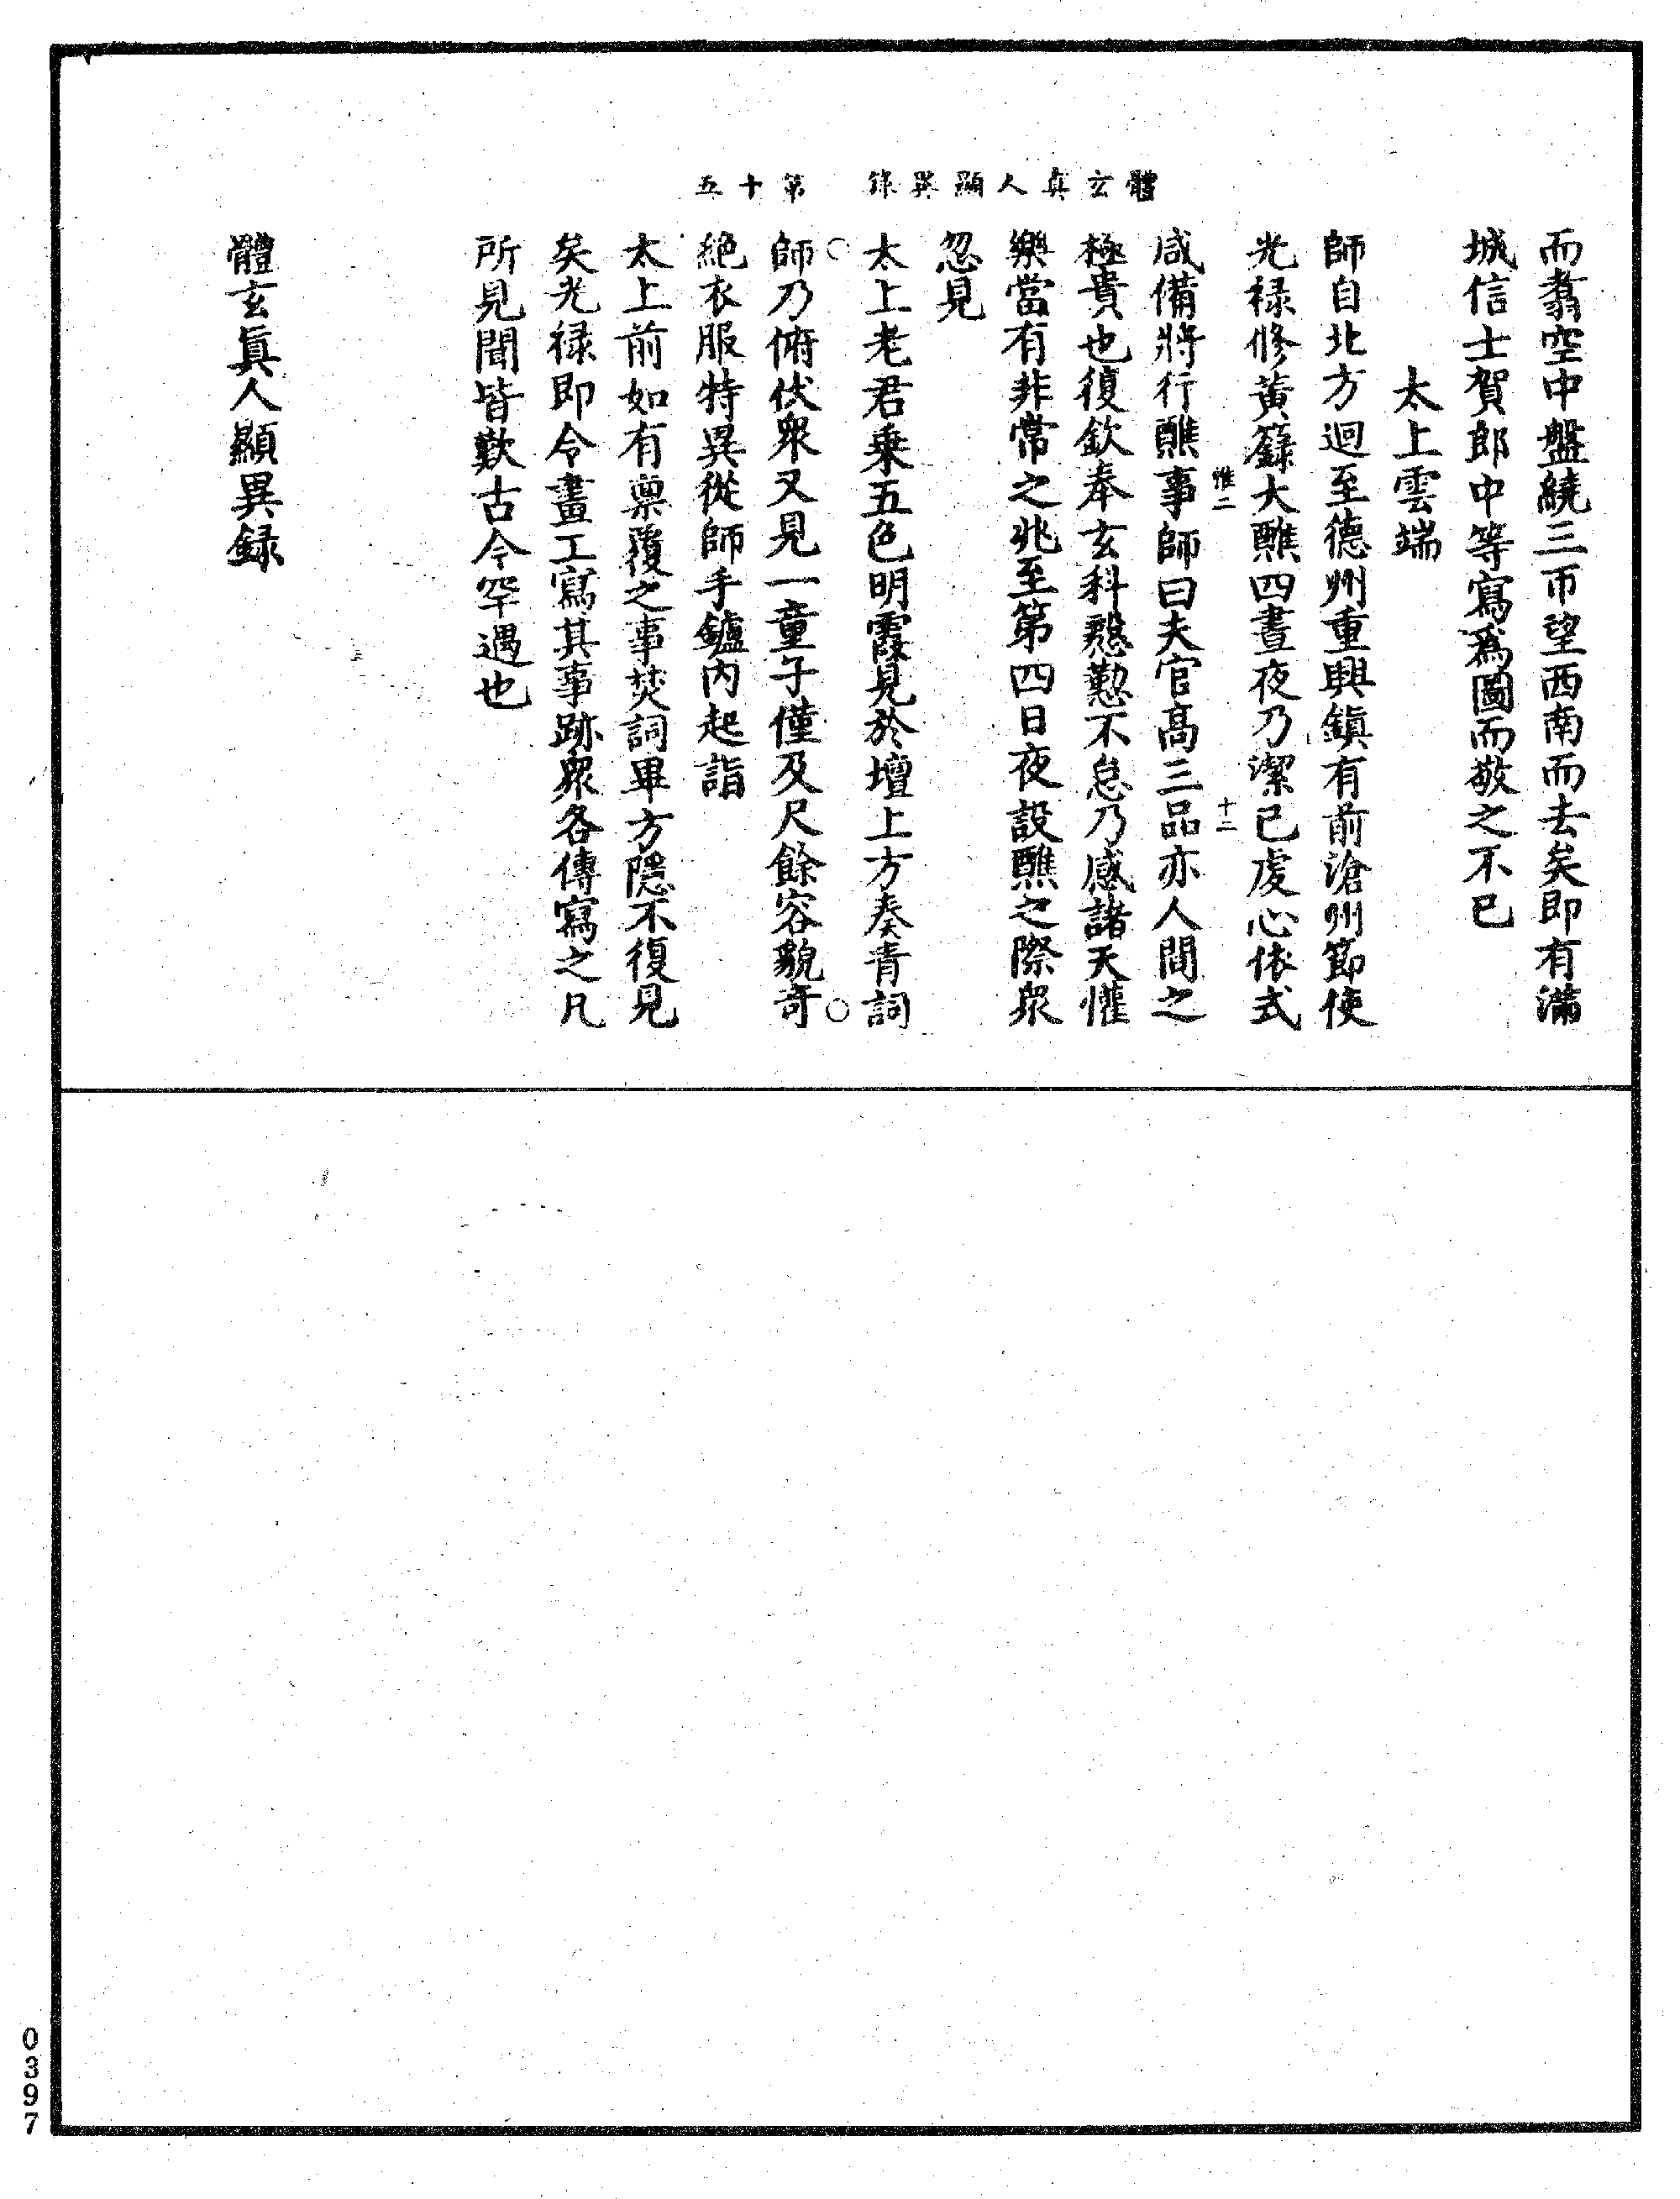 體玄真人顯異錄 第十五
而翥空中盤繞三帀望西南而去矣即有滿
城信士賀郎中等寫爲圖而敬之不已
太上雲端
師自北方迴至德州重興鎮有前滄州節使
光禄修黃籙大醮四晝夜乃潔己虔心依式
惟二 十二
咸備將行醮事師曰夫官髙三品亦人間之
極貴也復欽奉玄科懇懃不怠乃感諸天懽
樂當有非常之兆至第四日夜設醮之際衆
忽見
太上老君乗五色明霞見於壇上方奏青詞
師乃俯伏衆又見一童子僅及尺餘容貌竒
絕衣服特異從師手鑪内起詣
太上前如有禀覆之事焚詞畢方隱不復見
矣光禄即令畫工寫其事跡衆各傳寫之凡
所見聞皆歎古今罕遇也
體玄眞人顯異録
0397